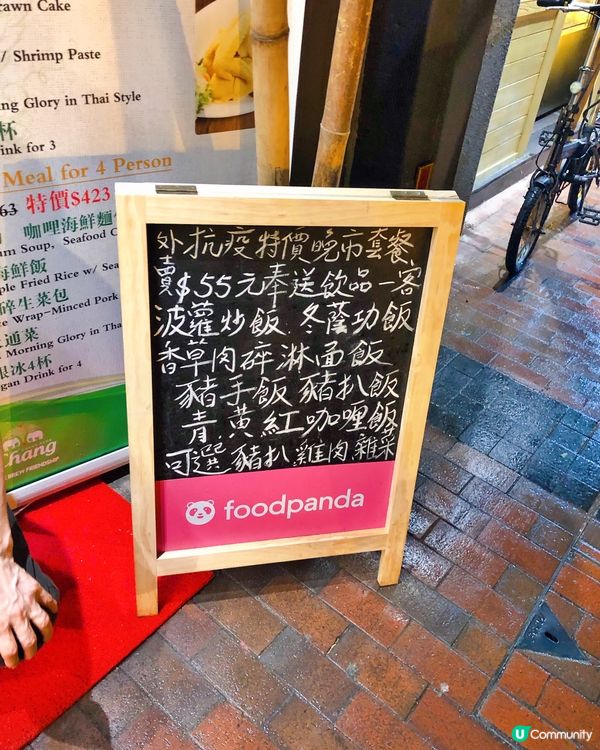 rawn Cake
/ Shrimp Paste
ng Glory in Thai Style
杯
ink for 3
Meal for 4 Person
63 特價$423
咖哩海鮮麵包
um Soup, Seafood C
海鮮飯
ple Fried Rice w/ Sea
碎生菜包
e Wrap-Minced Pork
通菜
Morning Glory in Tha
眼冰4杯
gan Drink for 4
Chang
BREW FRIENDSHIP
外抗疫特價晚市套餐
賣$55元奉送飲品一客
菠蘿炒飯 冬蔭功飯
香草肉碎淋面飯
豬手飯 豬扒飯
青黃紅咖喱飯
可選豬扒雞肉雜菜
foodpanda
U Community